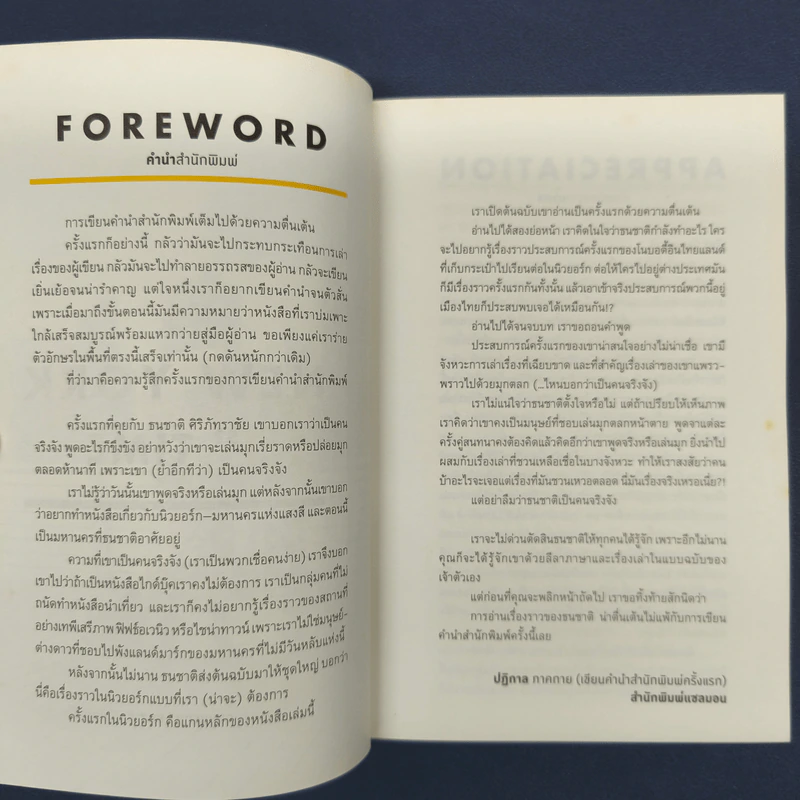 FOREWORD
คำนำสำนักพิมพ์
การเขียนคำนำสำนักพิมพ์เต็มไปด้วยความตื่นเต้น
ครั้งแรกก็อย่างนี้ กลัวว่ามันจะไปกระทบกระเทือนการเล่า
เรื่องของผู้เขียน กลัวมันจะไปทำลายอรรถรสของผู้อ่าน กลัวจะเขียน
เยิ่นเย้อจนน่ารำคาญ แต่ใจหนึ่งเราก็อยากเขียนคำนำจนตัวสั่น
เพราะเมื่อมาถึงขั้นตอนนี้มันมีความหมายว่าหนังสือที่เราบ่มเพาะ
ใกล้เสร็จสมบูรณ์พร้อมแหวกว่ายสู่มือผู้อ่าน ขอเพียงแค่เราร่าย
ตัวอักษรในพื้นที่ตรงนี้เสร็จเท่านั้น (กดดันหนักกว่าเดิม)
ที่ว่ามาคือความรู้สึกครั้งแรกของการเขียนคำนำสำนักพิมพ์
ครั้งแรกที่คุยกับ ธนชาติ ศิริภัทราชัย เขาบอกเราว่าเป็นคน
จริงจัง พูดอะไรก็ขึงขัง อย่าหวังว่าเขาจะเล่นมุกเรี่ยราดหรือปล่อยมุก
ตลอดห้านาที เพราะเขา (ย้ำอีกทีว่า) เป็นคนจริงจัง
เราไม่รู้ว่าวันนั้นเขาพูดจริงหรือเล่นมุก แต่หลังจากนั้นเขาบอก
ว่าอยากทำหนังสือเกี่ยวกับนิวยอร์ก–มหานครแห่งแสงสี และตอนนี้
เป็นมหานครที่ธนชาติอาศัยอยู่
ความที่เขาเป็นคนจริงจัง (เราเป็นพวกเชื่อคนง่าย) เราจึงบอก
เขาไปว่าถ้าเป็นหนังสือไกด์บุ๊คเราคงไม่ต้องการ เราเป็นกลุ่มคนที่ไม่
ถนัดทำหนังสือนำเที่ยว และเราก็คงไม่อยากรู้เรื่องราวของสถานที่
อย่างเทพีเสรีภาพ ฟิฟธ์อเวนิว หรือไชน่าทาวน์ เพราะเราไม่ใช่มนุษย์–
ต่างดาวที่ชอบไปพังแลนด์มาร์กของมหานครที่ไม่มีวันหลับแห่งนี้
หลังจากนั้นไม่นาน ธนชาติส่งต้นฉบับมาให้ชุดใหญ่ บอกว่า
นี่คือเรื่องราวในนิวยอร์กแบบที่เรา (น่าจะ) ต้องการ
ครั้งแรกในนิวยอร์ก คือแกนหลักของหนังสือเล่มนี้
เราเปิดต้นฉบับเขาอ่านเป็นครั้งแรกด้วยความตื่นเต้น
อ่านไปได้สองย่อหน้า เราคิดในใจว่าธนชาติกำลังทำอะไร ใคร
จะไปอยากรู้เรื่องราวประสบการณ์ครั้งแรกของโนบอดี้อินไทยแลนด์
ที่เก็บกระเป๋าไปเรียนต่อในนิวยอร์ก ต่อให้ใครไปอยู่ต่างประเทศมัน
ก็มีเรื่องราวครั้งแรกกันทั้งนั้น แล้วเอาเข้าจริงประสบการณ์พวกนี้อยู่
เมืองไทยก็ประสบพบเจอได้เหมือนกัน!?
อ่านไปได้จนจบบท เราขอถอนคำพูด
ประสบการณ์ครั้งแรกของเขาน่าสนใจอย่างไม่น่าเชื่อ เขามี
จังหวะการเล่าเรื่องที่เฉียบขาด และที่สำคัญเรื่องเล่าของเขาแพรว–
พราวไปด้วยมุกตลก (...ไหนบอกว่าเป็นคนจริงจัง)
เราไม่แน่ใจว่าธนชาติตั้งใจหรือไม่ แต่ถ้าเปรียบให้เห็นภาพ
เราคิดว่าเขาคงเป็นมนุษย์ที่ชอบเล่นมุกตลกหน้าตาย พูดจาแต่ละ
ครั้งคู่สนทนาคงต้องคิดแล้วคิดอีกว่าเขาพูดจริงหรือเล่นมุก ยิ่งนำไป
ผสมกับเรื่องเล่าที่ชวนเหลือเชื่อในบางจังหวะ ทำให้เราสงสัยว่าคน
บ้าอะไรจะเจอแต่เรื่องที่มันชวนเหวอตลอด นี่มันเรื่องจริงเหรอเนี่ย?!
แต่อย่าลืมว่าธนชาติเป็นคนจริงจัง
เราจะไม่ด่วนตัดสินธนชาติให้ทุกคนได้รู้จัก เพราะอีกไม่นาน
คุณก็จะได้รู้จักเขาด้วยลีลาภาษาและเรื่องเล่าในแบบฉบับของ
เจ้าตัวเอง
แต่ก่อนที่คุณจะพลิกหน้าถัดไป เราขอทิ้งท้ายสักนิดว่า
การอ่านเรื่องราวของธนชาติ น่าตื่นเต้นไม่แพ้กับการเขียน
คำนำสำนักพิมพ์ครั้งนี้เลย
ปฏิกาล ภาคกาย (เขียนคำนำสำนักพิมพ์ครั้งแรก)
สำนักพิมพ์แซลมอน
APPRECIATION